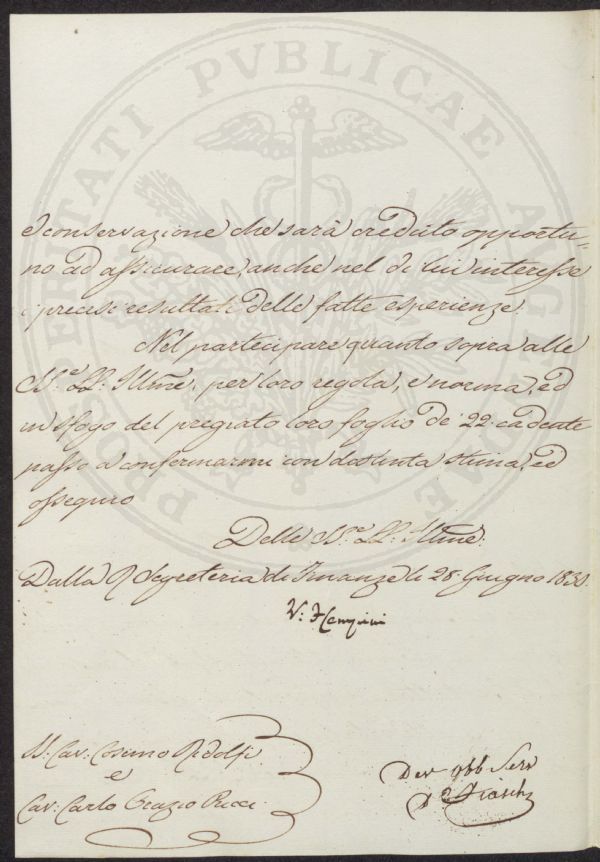 PROSPERITATI PVBLICAE AVGENDAE
e conservazione che sarà creduto opportu=
no ad assicurare, anche nel di lui interesse
i precisi resultati delle fatte esperienze.
Nel partecipare quanto sopra alle
LL. Illme, per loro regola, e norma, ed
in sfogo del pregiato loro foglio de' 22 cadente
passo a confermarmi con distinta stima, ed
ossequio
Delle LL. Illme.
Dalla R. Segreteria di Finanze li 28. Giugno 1830
V: Fempini
SS. Cav: Cosimo Ridolfi
e
Cav: Carlo Orazio Pucci
Dev Obb Serv